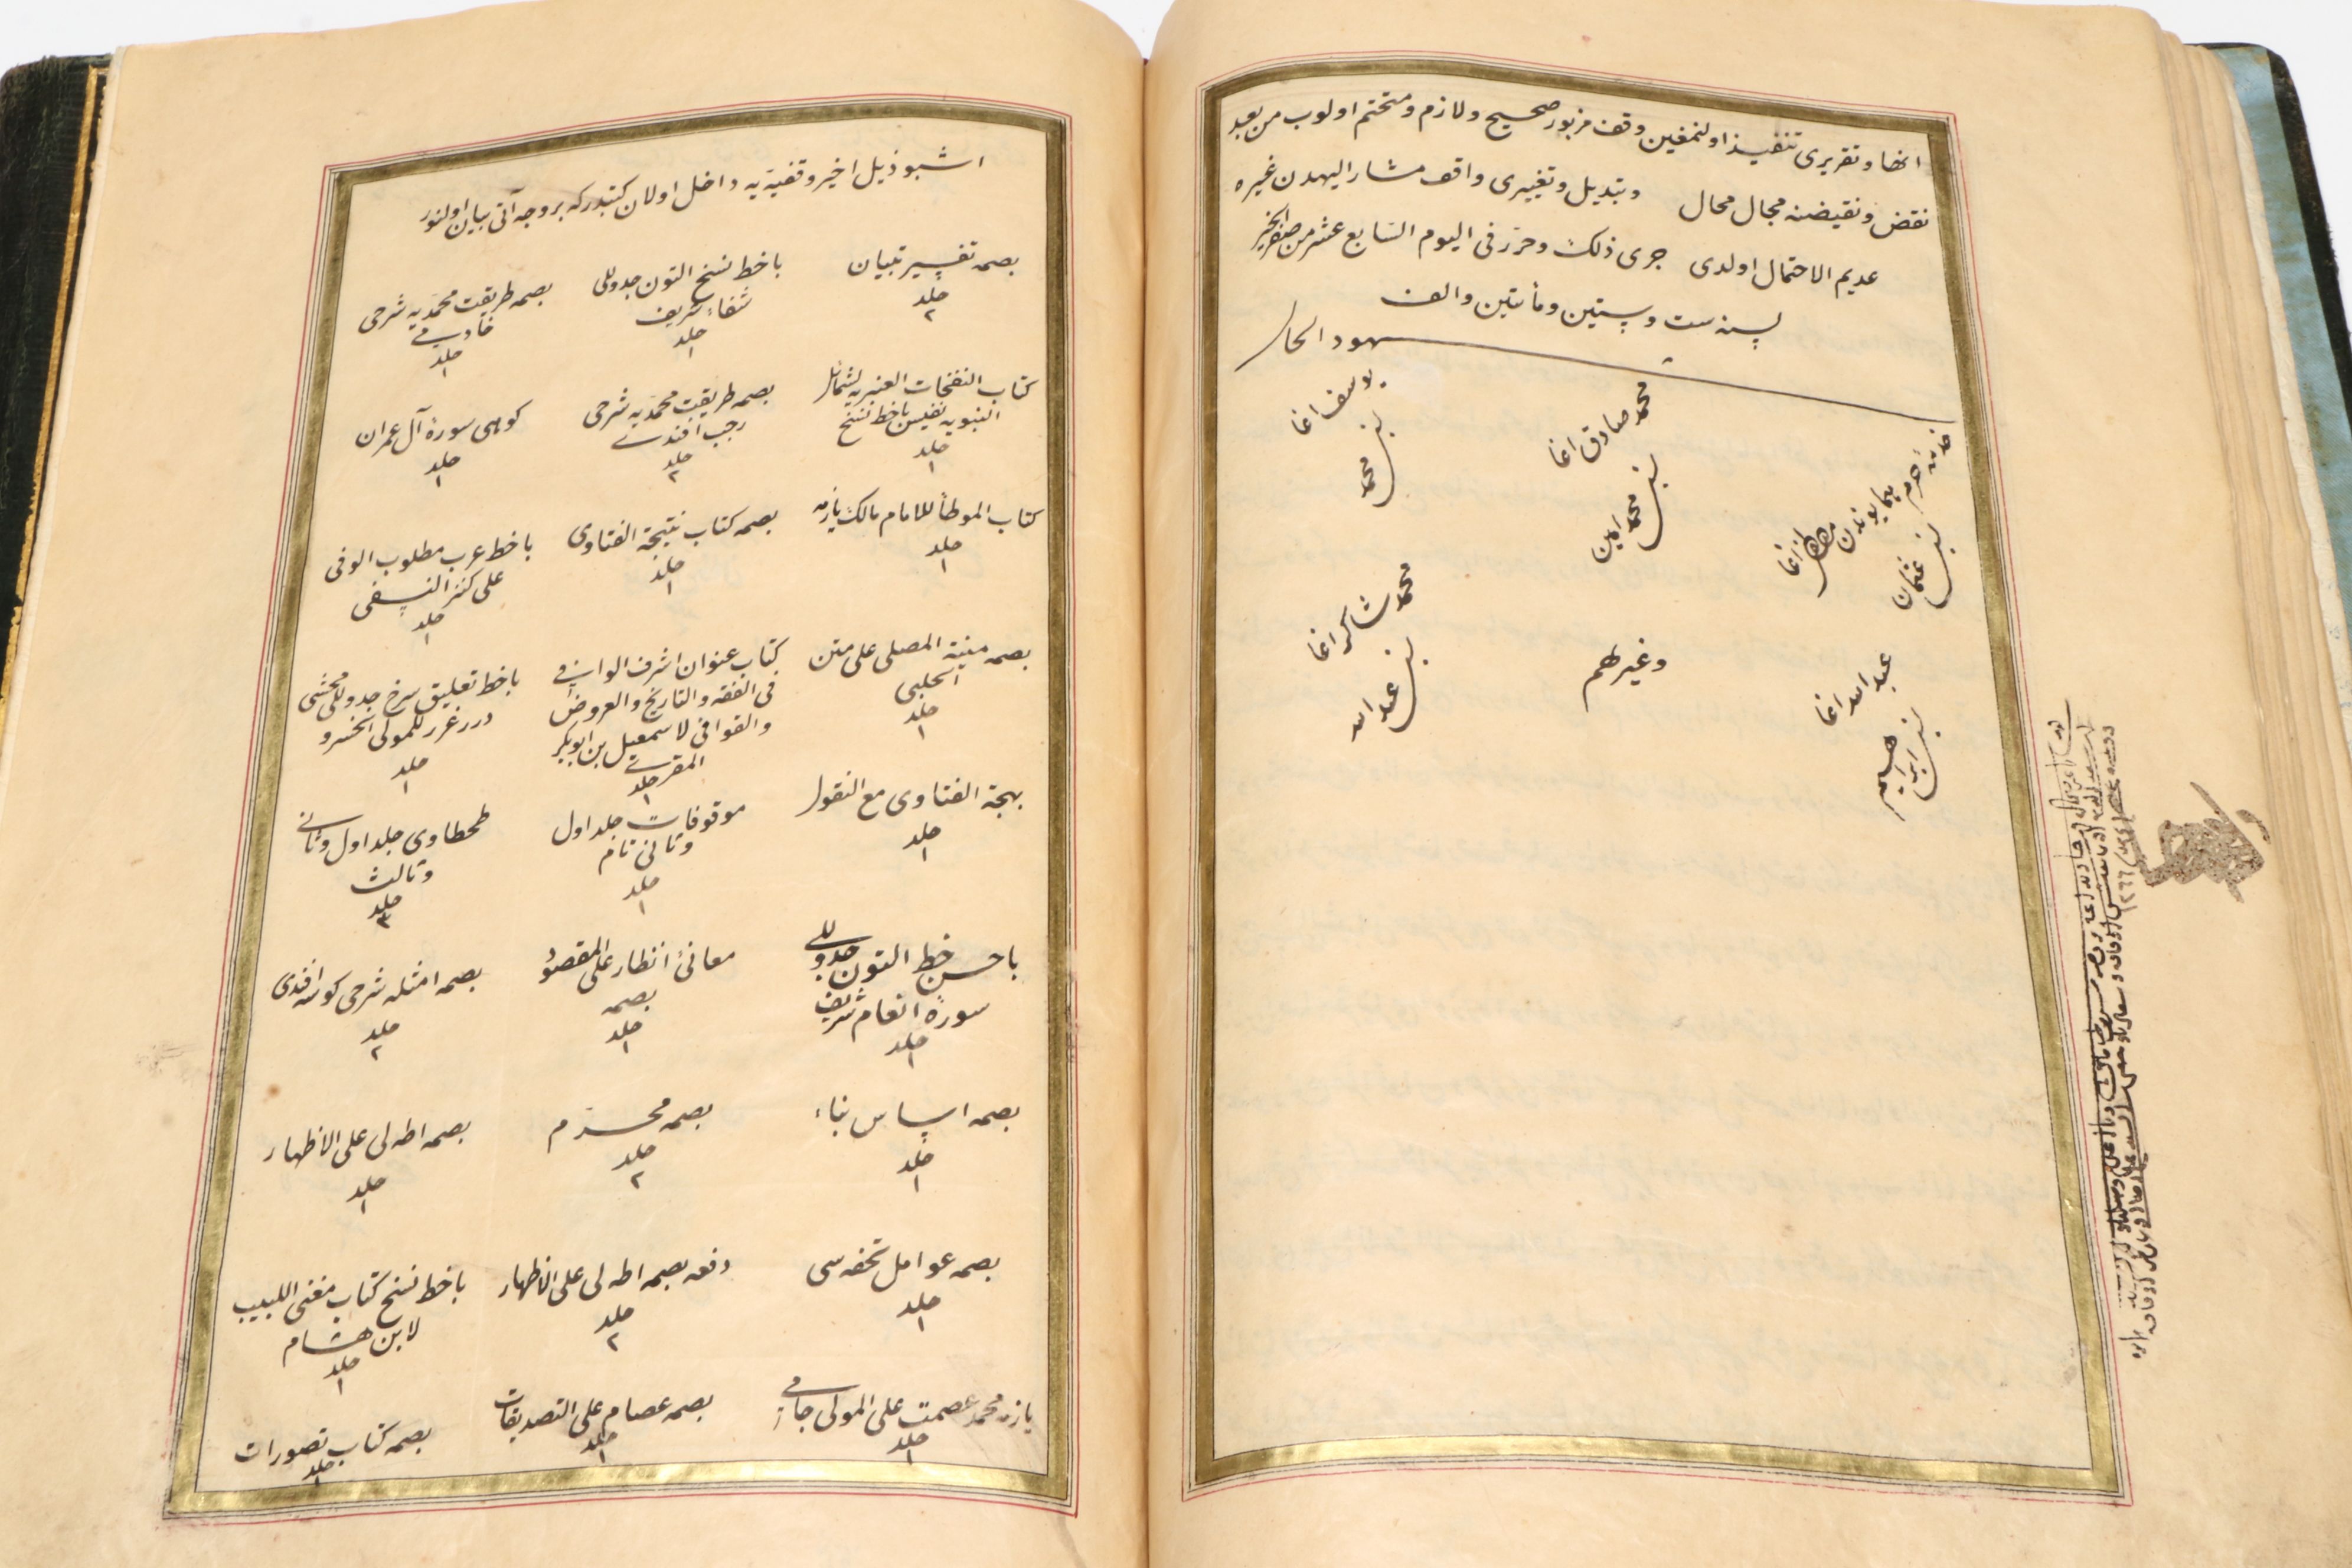 انها و تقريرى تنفيذ اولنمغين وقف مزبور صحيح و لازم و متحتم اولوب من بعد
نقض و نقيضنه مجال محال و تبديل و تغييرى واقف مشار اليهدن غيره
عديم الاحتمال اولدى جرى ذلك و حرر فى اليوم السابع عشر من صفر الخير
لسنه ست و ستين و مأتين و الف
شهود الحال
همايوندن
اغا
بن عثمان
محمد صادق اغا
بن محمد امين
يوسف اغا
بن محمد
عبد الله اغا
بن ابراهيم
وغيرهم
محمد شاكر اغا
بن عبد الله
١٢٦٦
اشبو ذيل اخير وقفيه يه داخل اولان كتبدركه بروجه آتى بيان اولنور
بصمه تفسير تبيان
جلد
٢
با خط نسخ التون جدوللى
شفاء شريف
جلد
١
بصمه طريقت محمديه شرحى
خادمى
جلد
١
كتاب النفحات العنبريه لشمائل
النبويه نفيس با خط نسخ
جلد
١
بصمه طريقت محمديه شرحى
رجب افندى
جلد
٢
كوهى سورۀ آل عمران
جلد
١
كتاب الموطأ للامام مالك يازمه
جلد
١
بصمه كتاب نتيجة الفتاوى
جلد
١
با خط عرب مطلوب الوفى
على كنز النسفى
جلد
١
بصمه منية المصلى على متن
الحلبى
جلد
١
كتاب عنوان اشرف الوافى
فى الفقه و التاريخ و العروض
و القوافى لاسمعيل بن ابوبكر
المقرى
جلد
١
با خط تعليق سرخ جدوللى محشى
درر غرر للمولى الخسرو
جلد
١
بهجة الفتاوى مع النقول
جلد
١
موقوفات جلد اول
و ثانى تام
جلد
١
طحطاوى جلد اول و ثانى
و ثالث
جلد
٣
با حسن خط التون جدوللى
سورۀ انعام شريف
جلد
١
معانئ انظار على المقصود
بصمه
جلد
١
بصمه امثله شرحى كوسه افندى
جلد
٢
بصمه اساس بناء
جلد
١
بصمه محرم
جلد
٢
بصمه اطه لى على الاظهار
جلد
١
بصمه عوامل تحفه سى
جلد
١
دفعه بصمه اطه لى على الاظهار
جلد
٢
با خط نسخ كتاب مغنى اللبيب
لابن هشام
جلد
١
يازمه محمد عصمت على المولى جامى
جلد
١
بصمه عصام على التصديقات
جلد
١
بصمه كتاب تصورات
جلد
١